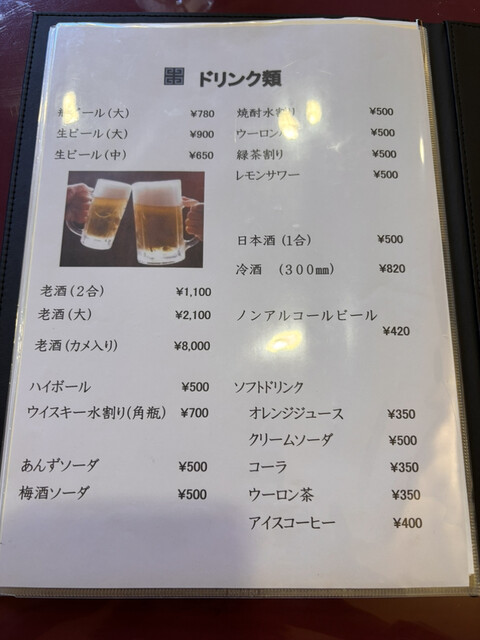 ドリンク類
瓶ビール(大) ¥780
生ビール(大) ¥900
生ビール(中) ¥650
老酒(2合) ¥1,100
老酒(大) ¥2,100
老酒(カメ入り) ¥8,000
ハイボール ¥500
ウイスキー水割り(角瓶) ¥700
あんずソーダ ¥500
梅酒ソーダ ¥500
焼酎水割り ¥500
ウーロンハイ ¥500
緑茶割り ¥500
レモンサワー ¥500
日本酒(1合) ¥500
冷酒 (300㎜) ¥820
ノンアルコールビール
¥420
ソフトドリンク
オレンジジュース ¥350
クリームソーダ ¥500
コーラ ¥350
ウーロン茶 ¥350
アイスコーヒー ¥400